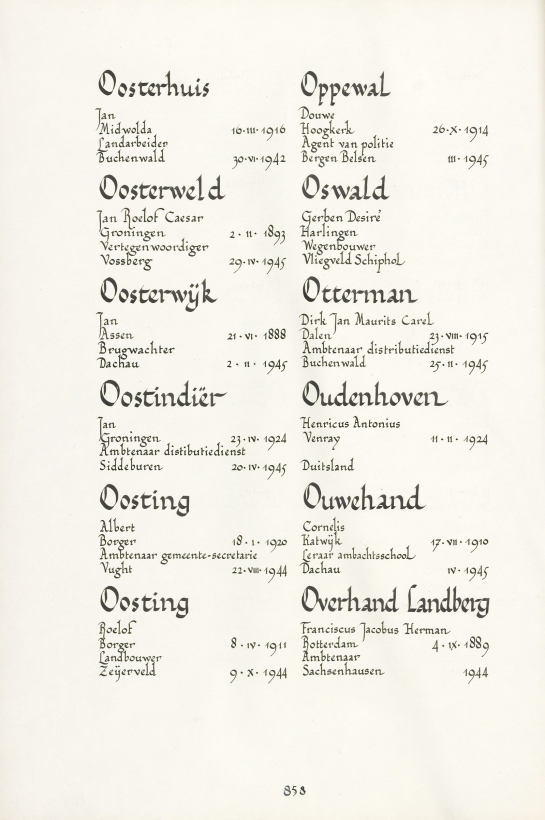 Oosterhuis
Jan
Midwolda 16·III·1916
Landarbeider
Buchenwald 30·VI·1942
Oosterweld
Jan Roelof Caesar
Groningen 2·II·1893
Vertegenwoordiger
Vossberg 29·IV·1945
Oosterwijk
Jan
Assen 21·VI·1888
Brugwachter
Dachau 2·II·1945
Oostindiër
Jan
Groningen 23·IV·1924
Ambtenaar distibutiedienst
Siddeburen 20·IV·1945
Oosting
Albert
Borger 18·I·1920
Ambtenaar gemeente-secretarie
Vught 22·VIII·1944
Oosting
Roelof
Borger 8·IV·1911
Landbouwer
Zeijerveld 9·X·1944
Oppewal
Douwe
Hoogkerk 26·X·1914
Agent van politie
Bergen Belsen III·1945
Oswald
Gerben Desiré
Harlingen
Wegenbouwer
Vliegveld Schiphol
Otterman
Dirk Jan Maurits Carel
Dalen 23·VIII·1915
Ambtenaar distributiedienst
Buchenwald 25·II·1945
Oudenhoven
Henricus Antonius
Venray 11·II·1924
Duitsland
Ouwehand
Cornelis
Katwijk 17·VII·1910
Leraar ambachtsschool
Dachau IV·1945
Overhand Landberg
Franciscus Jacobus Herman
Rotterdam 4·IX·1889
Ambtenaar
Sachsenhausen 1944
853